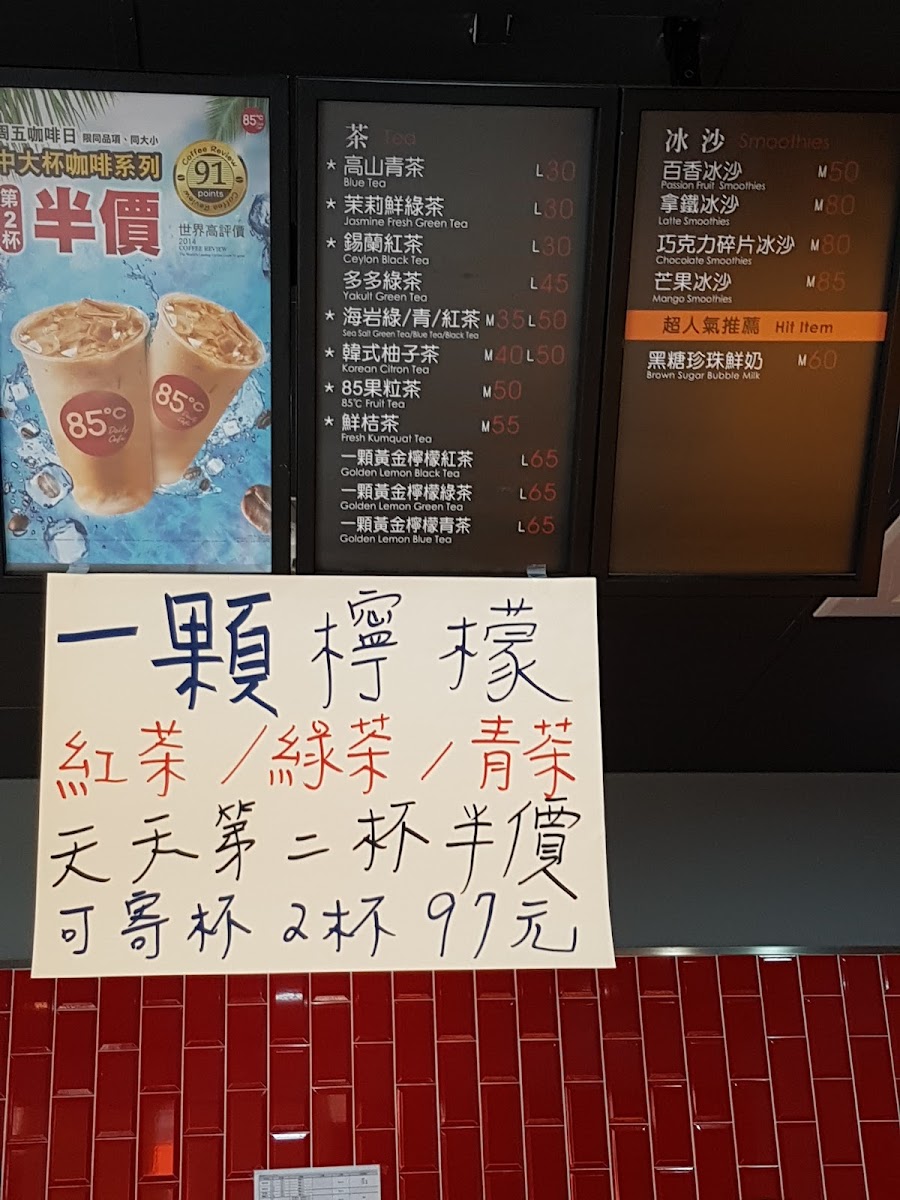 周五咖啡日 限同品項、同大小
中大杯咖啡系列
第2杯 半價
85℃
Coffee Review
91
points
世界高評價
2014
COFFEE REVIEW
85℃
Daily Cafe
85℃
Daily Cafe
茶 Tea
* 高山青茶 L30
Blue Tea
* 茉莉鮮綠茶 L30
Jasmine Fresh Green Tea
* 錫蘭紅茶 L30
Ceylon Black Tea
多多綠茶 L45
Yakult Green Tea
* 海岩綠/青/紅茶 M35 L50
Sea Salt Green Tea/Blue Tea/Black Tea
* 韓式柚子茶 M40 L50
Korean Citron Tea
* 85果粒茶 M50
85℃ Fruit Tea
* 鮮桔茶 M55
Fresh Kumquat Tea
一顆黃金檸檬紅茶 L65
Golden Lemon Black Tea
一顆黃金檸檬綠茶 L65
Golden Lemon Green Tea
一顆黃金檸檬青茶 L65
Golden Lemon Blue Tea
冰沙 Smoothies
百香冰沙 M50
Passion Fruit Smoothies
拿鐵冰沙 M80
Latte Smoothies
巧克力碎片冰沙 M80
Chocolate Smoothies
芒果冰沙 M85
Mango Smoothies
超人氣推薦 Hit Item
黑糖珍珠鮮奶 M60
Brown Sugar Bubble Milk
一顆檸檬
紅茶/綠茶/青茶
天天第二杯半價
可寄杯2杯97元